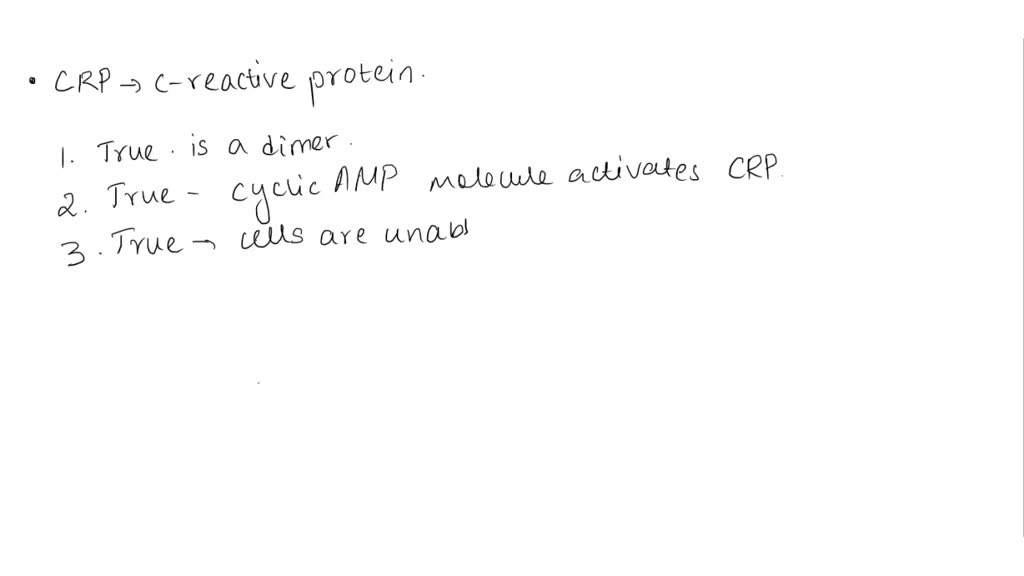 • CRP → C-reactive protein.
1. True. is a dimer.
2. True - cyclic AMP molecule activates CRP.
3. True → cells are unab